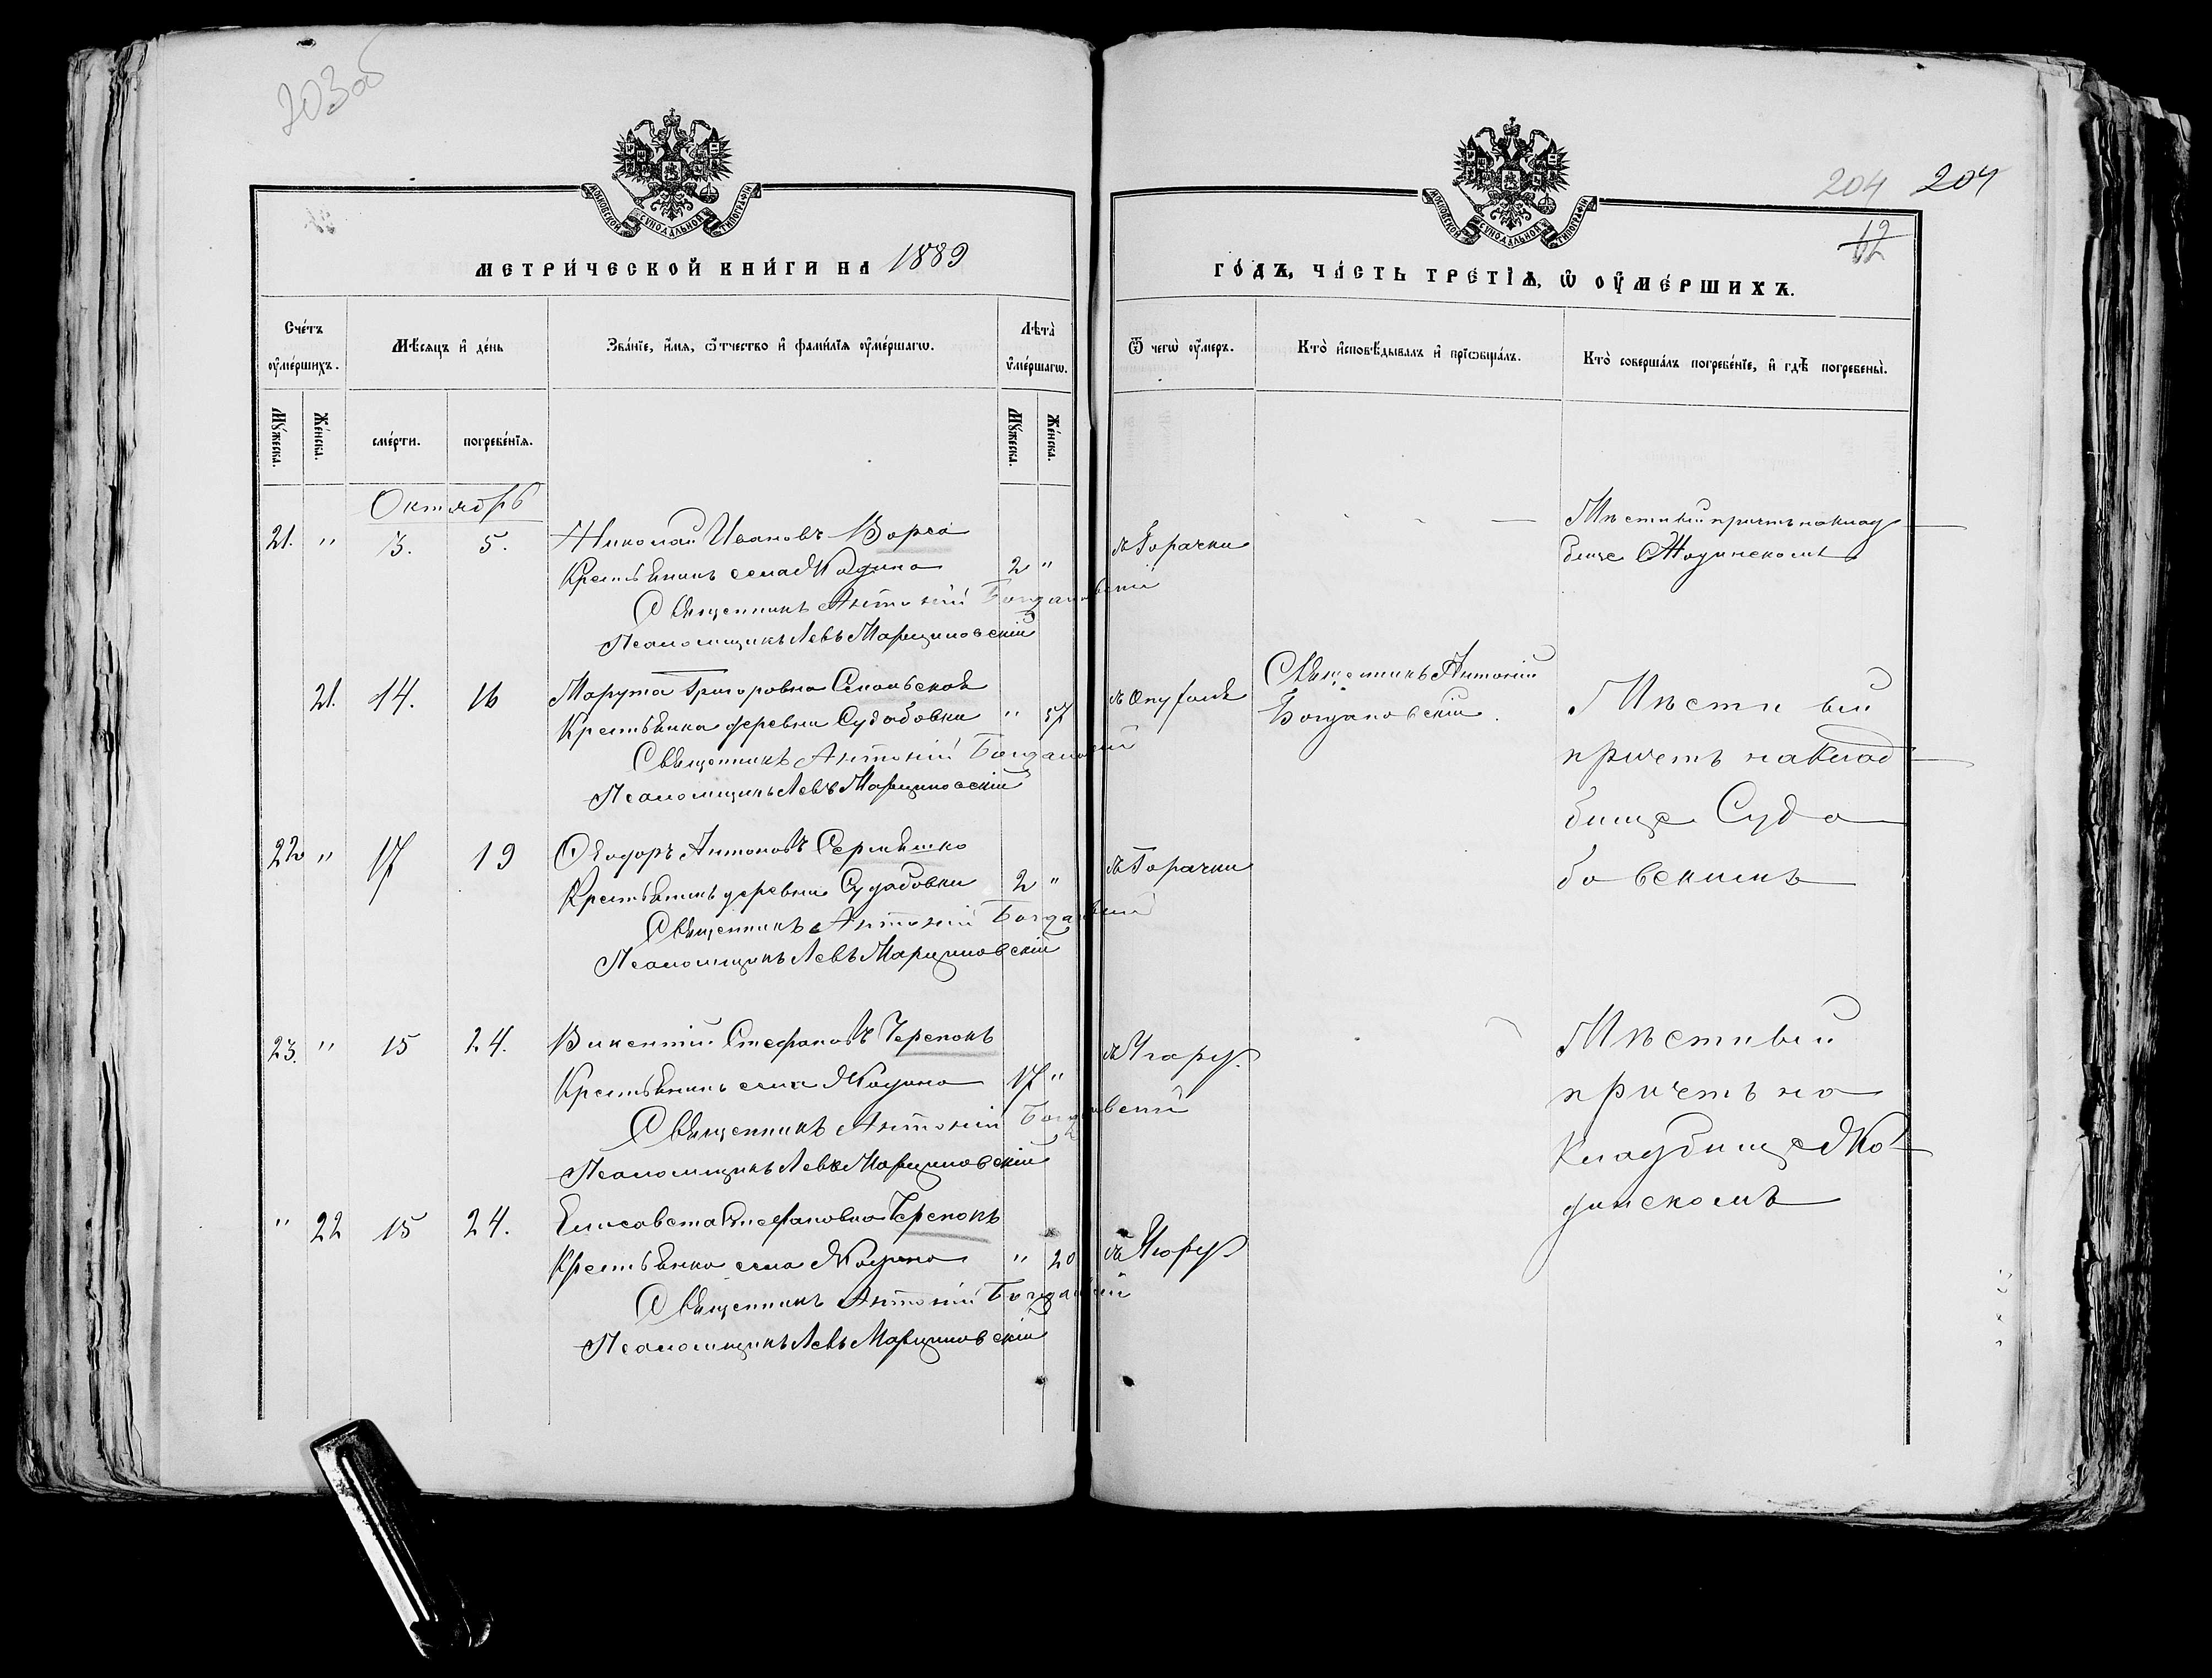 203об
МОСКОВСКОЙ СѴНОДАЛЬНОЙ ТИПОГРАФІИ
МЕТРИ́ЧЕСКОЙ КНИ́ГИ НА 1889
Сче́тъ ᲂу҆ме́ршихъ.
Мѣ́сяцъ и҆ де́нь
Зва́нїе, и҆́мя, ѻ҆́тчество и҆ фами́лїя ᲂу҆ме́ршагѡ.
Лѣта̀ ᲂу҆ме́ршагѡ.
Мꙋ́жеска. Же́нска.
сме́рти. погребе́нїя.
Мꙋ́жеска. Же́нска.
Октябрь
21. " 3. 5. Николай Ивановъ
Крестьянинъ села 2 "
Священникъ Антоній Богдановскій
Псаломщикъ Левъ Марциновскій
21. 14. 16 Григоровна
Крестьянка деревни Судобовки " 57
Священникъ Антоній Богдановскій
Псаломщикъ Левъ Марциновскій
22 " 17 19 Ѳеодоръ Антоновъ
Крестьянинъ деревни Судобовки 2 "
Священникъ Антоній Богдановскій
Псаломщикъ Левъ Марциновскій
23. " 15 24. Викентій Стефановъ Черепокъ
Крестьянинъ села 17 "
Священникъ Антоній Богдановскій
Псаломщикъ Левъ Марциновскій
" 22 15 24. Елисавета Стефановна Черепокъ
Крестьянка села " 20
Священникъ Антоній Богдановскій
Псаломщикъ Левъ Марциновскій
204 204
12
МОСКОВСКОЙ СѴНОДАЛЬНОЙ ТИПОГРАФІИ
ГО́ДЪ, ЧА́СТЬ ТРЕ́ТІѦ, Ѡ҆ ОУ҆МЕ́РШИХЪ.
Ѿ чегѡ̀ ᲂу҆́меръ.
Кто̀ и҆сповѣ́дывалъ и҆ прїѡбща́лъ.
Кто̀ соверша́лъ погребе́нїе, и҆ гдѣ̀ погребены̀.
Горячки
Мѣстный причтъ на клад
бище
Священникъ Антоній
Богдановскій.
Мѣстный
причетъ на клад
бище Судо
бовскимъ
Горячки
Угару.
Мѣстный
причетъ на
Кладбище
динскомъ
Угару